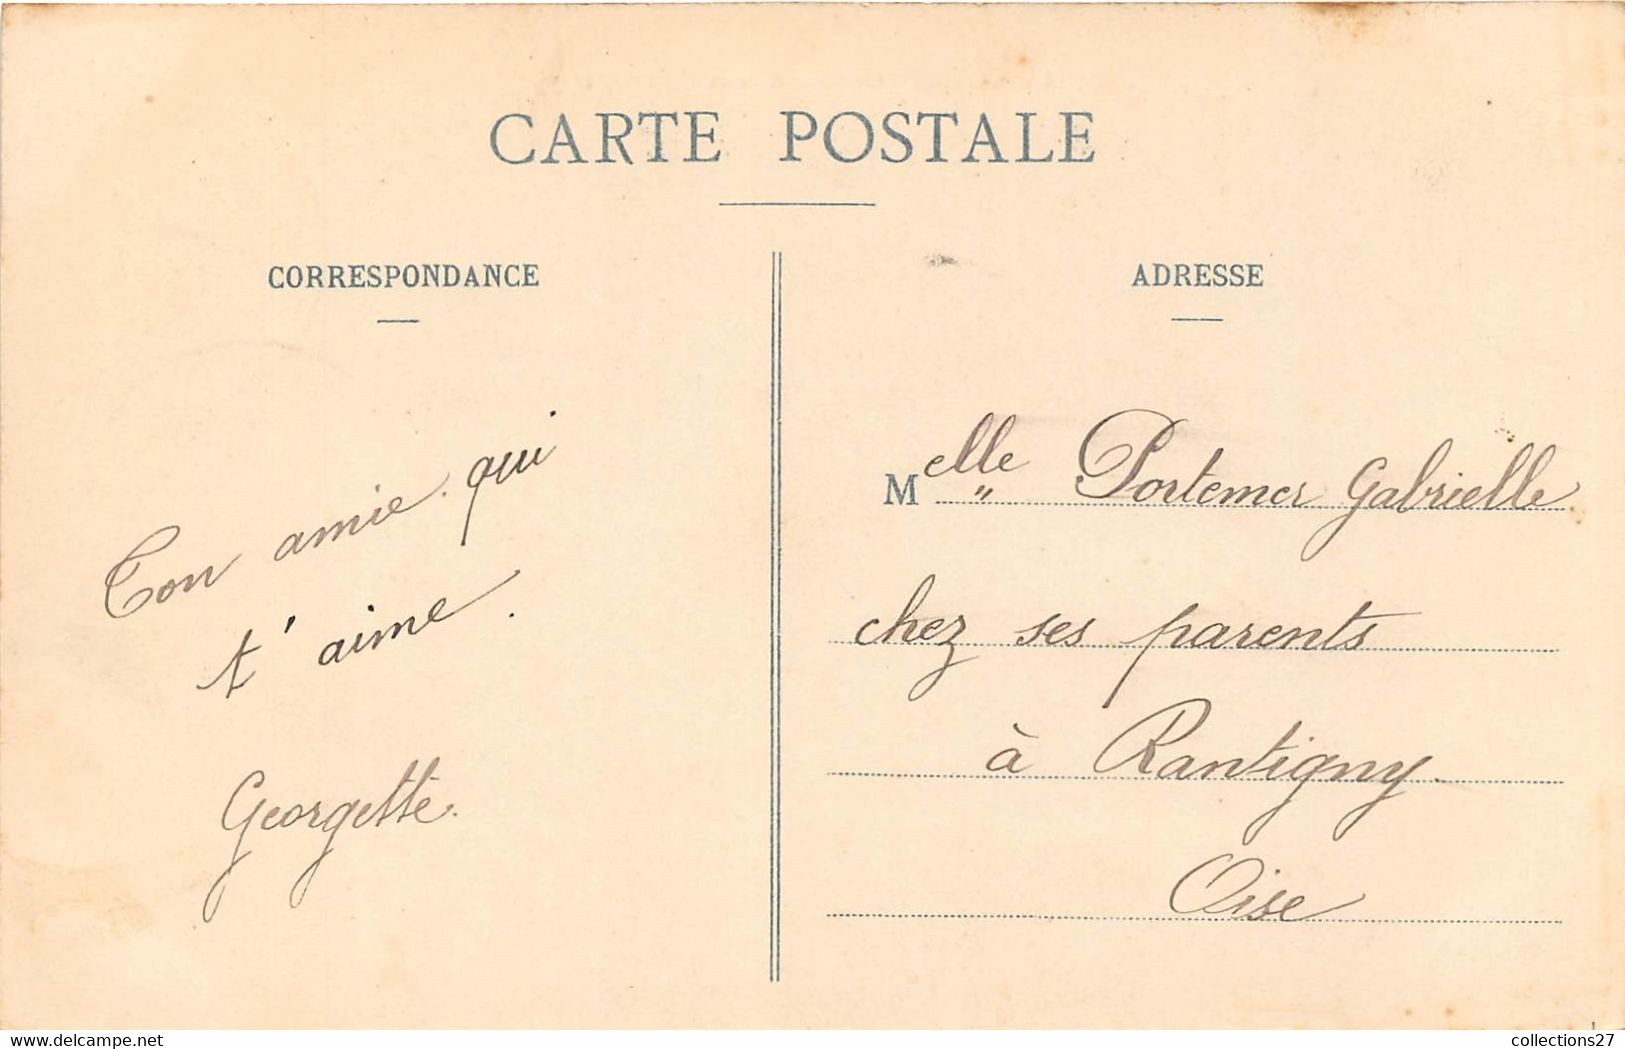 CARTE POSTALE
CORRESPONDANCE
Ton amie qui
t'aime.
Georgette.
ADRESSE
Melle Portemer Gabrielle
chez ses parents
à Rantigny
Oise
www.delcampe.net
collections27